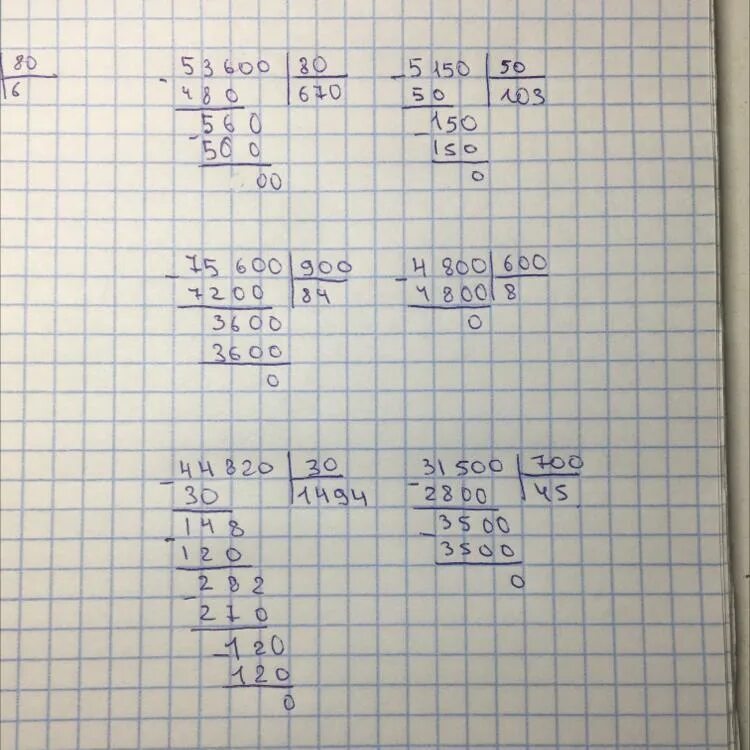 80
6
- 53600 | 80
480 | 670
560
- 560
00
- 5150 | 50
50 | 103
- 150
150
0
- 75600 | 900
7200 | 84
3600
3600
0
- 4800 | 600
4800 | 8
0
- 44820 | 30
30 | 1494
- 148
120
- 282
270
- 120
120
0
- 31500 | 700
2800 | 45
- 3500
3500
0